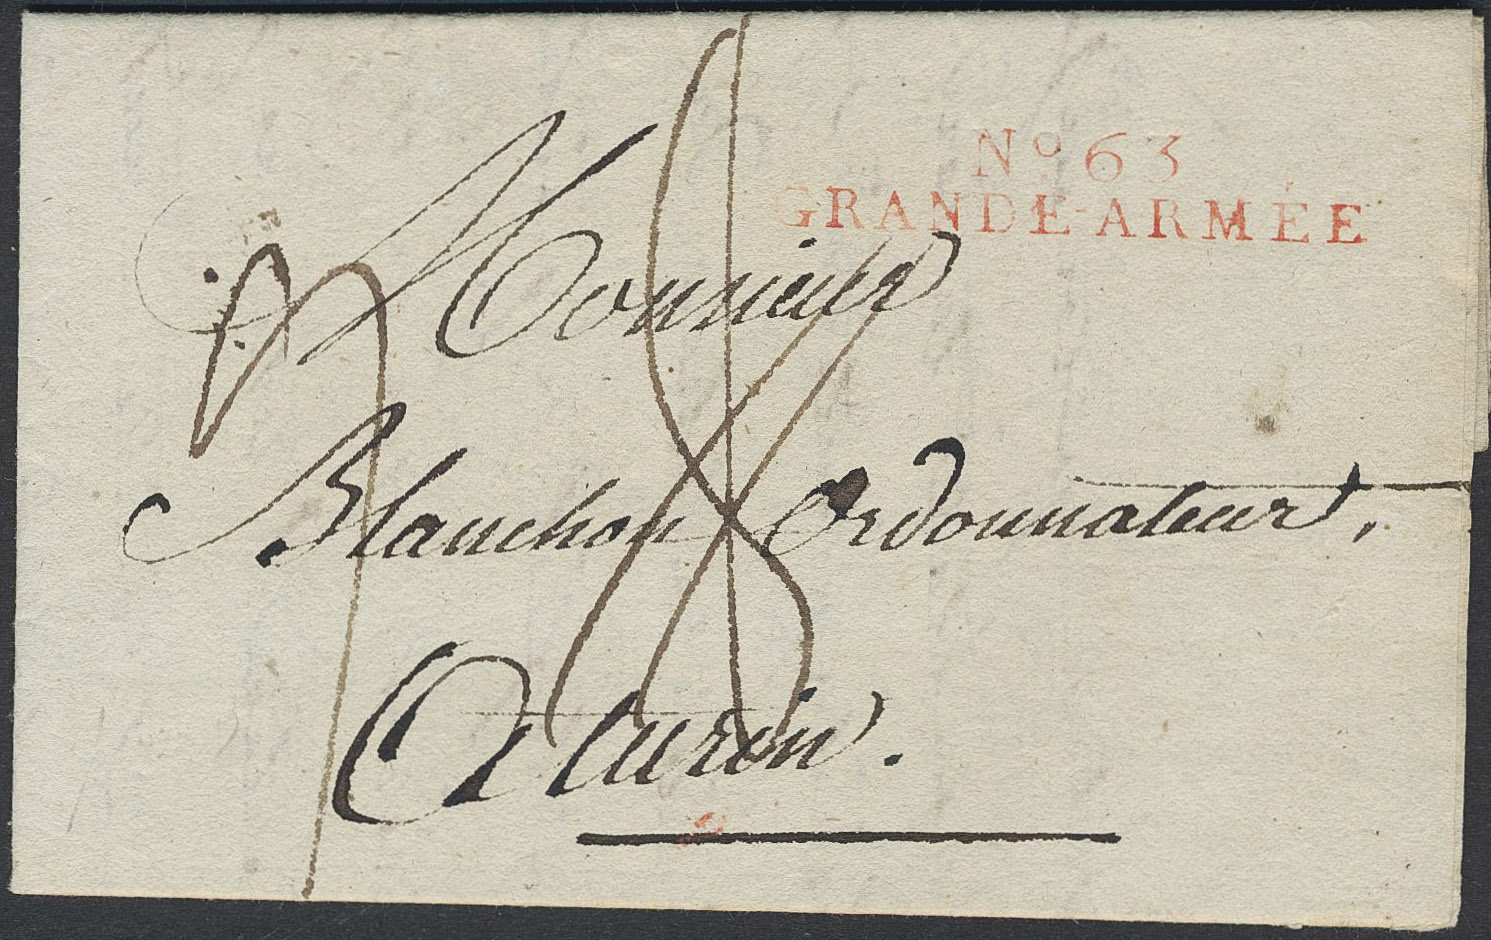 No 63
GRANDE-ARMÉE
Monsieur
Blanchon Ordonnateur,
A turin.